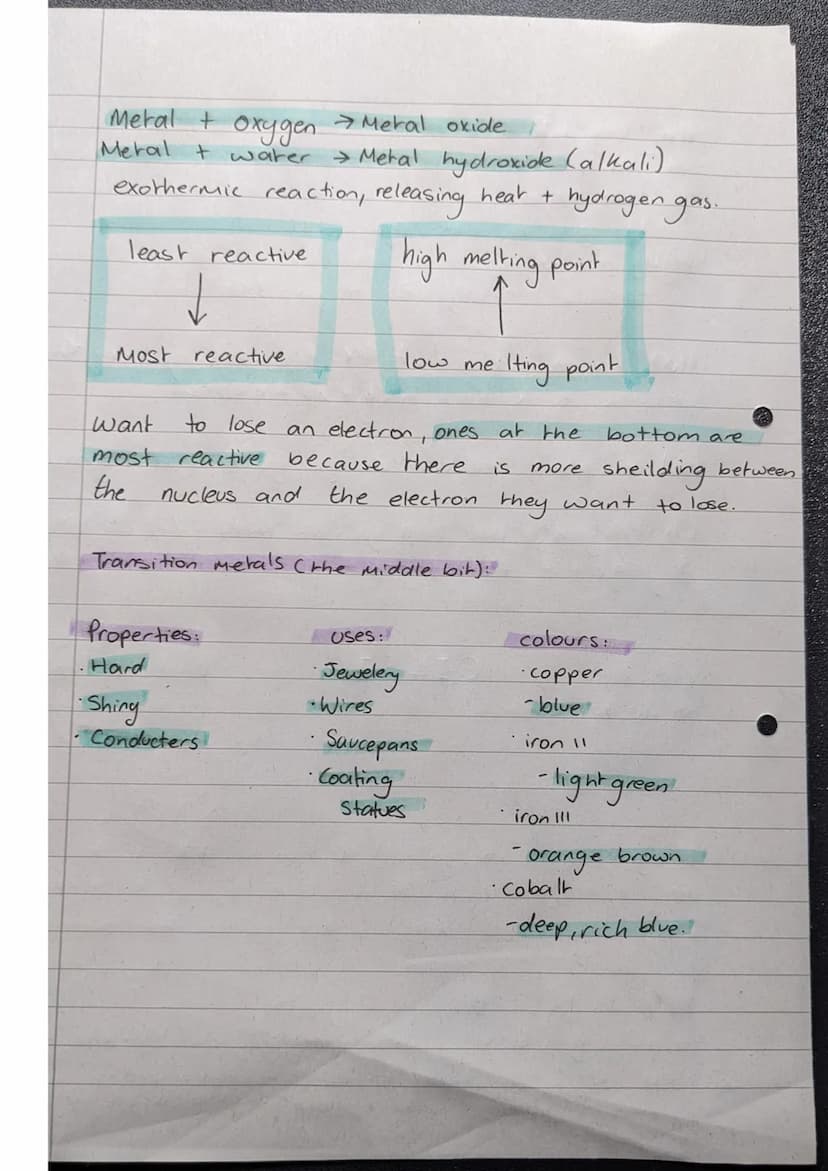 Metal + oxygen → Metal oxide
Metal + water → Metal hydroxide (alkali)
exothermic reaction, releasing heat + hydrogen gas.
least reactive
↓
Most reactive
high melting point
↑
low melting point
Want to lose an electron, ones at the bottom are
most reactive because there is more sheilding between
the nucleus and the electron they want to lose.
Transition metals (the middle bit):
Properties:
· Hard
· Shiny
· Conducters
uses:
· Jewelery
· Wires
· Saucepans
· Coating
statues
colours:
· copper
- blue
· iron II
- light green
· iron III
- orange brown
· cobalt
- deep, rich blue.